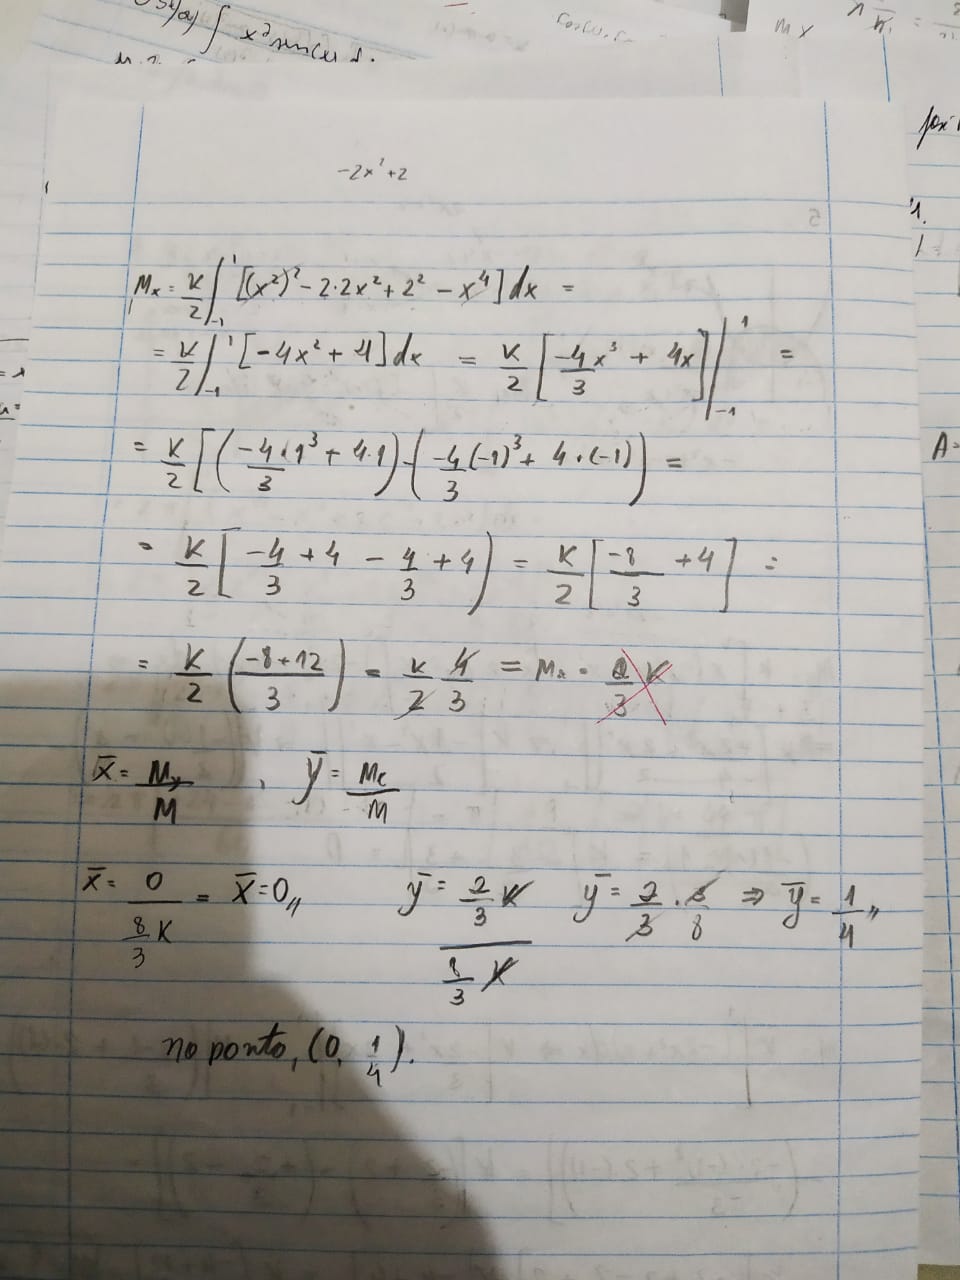 -2x² + 2
Mx = K/2 ∫₋₁¹ [(x²)² - 2·2x² + 2² - x⁴] dx =
= K/2 ∫₋₁¹ [-4x² + 4] dx = K/2 [-4/3 x³ + 4x] |₋₁¹ =
= K/2 [(-4/3 · 1³ + 4·1) - (-4/3 (-1)³ + 4·(-1)) =
= K/2 [-4/3 + 4 - 4/3 + 4) = K/2 [-8/3 + 4] =
= K/2 (-8+12/3) = K/2 4/3 = Mx = 2/3 K
x̄ = My/M , ȳ = Mx/M
x̄ = 0/(8/3 K) = x̄ = 0,, ȳ = (2/3 K)/(8/3 K) ȳ = 2/3 · 3/8 ⇒ ȳ = 1/4 ,,
no ponto, (0, 1/4).